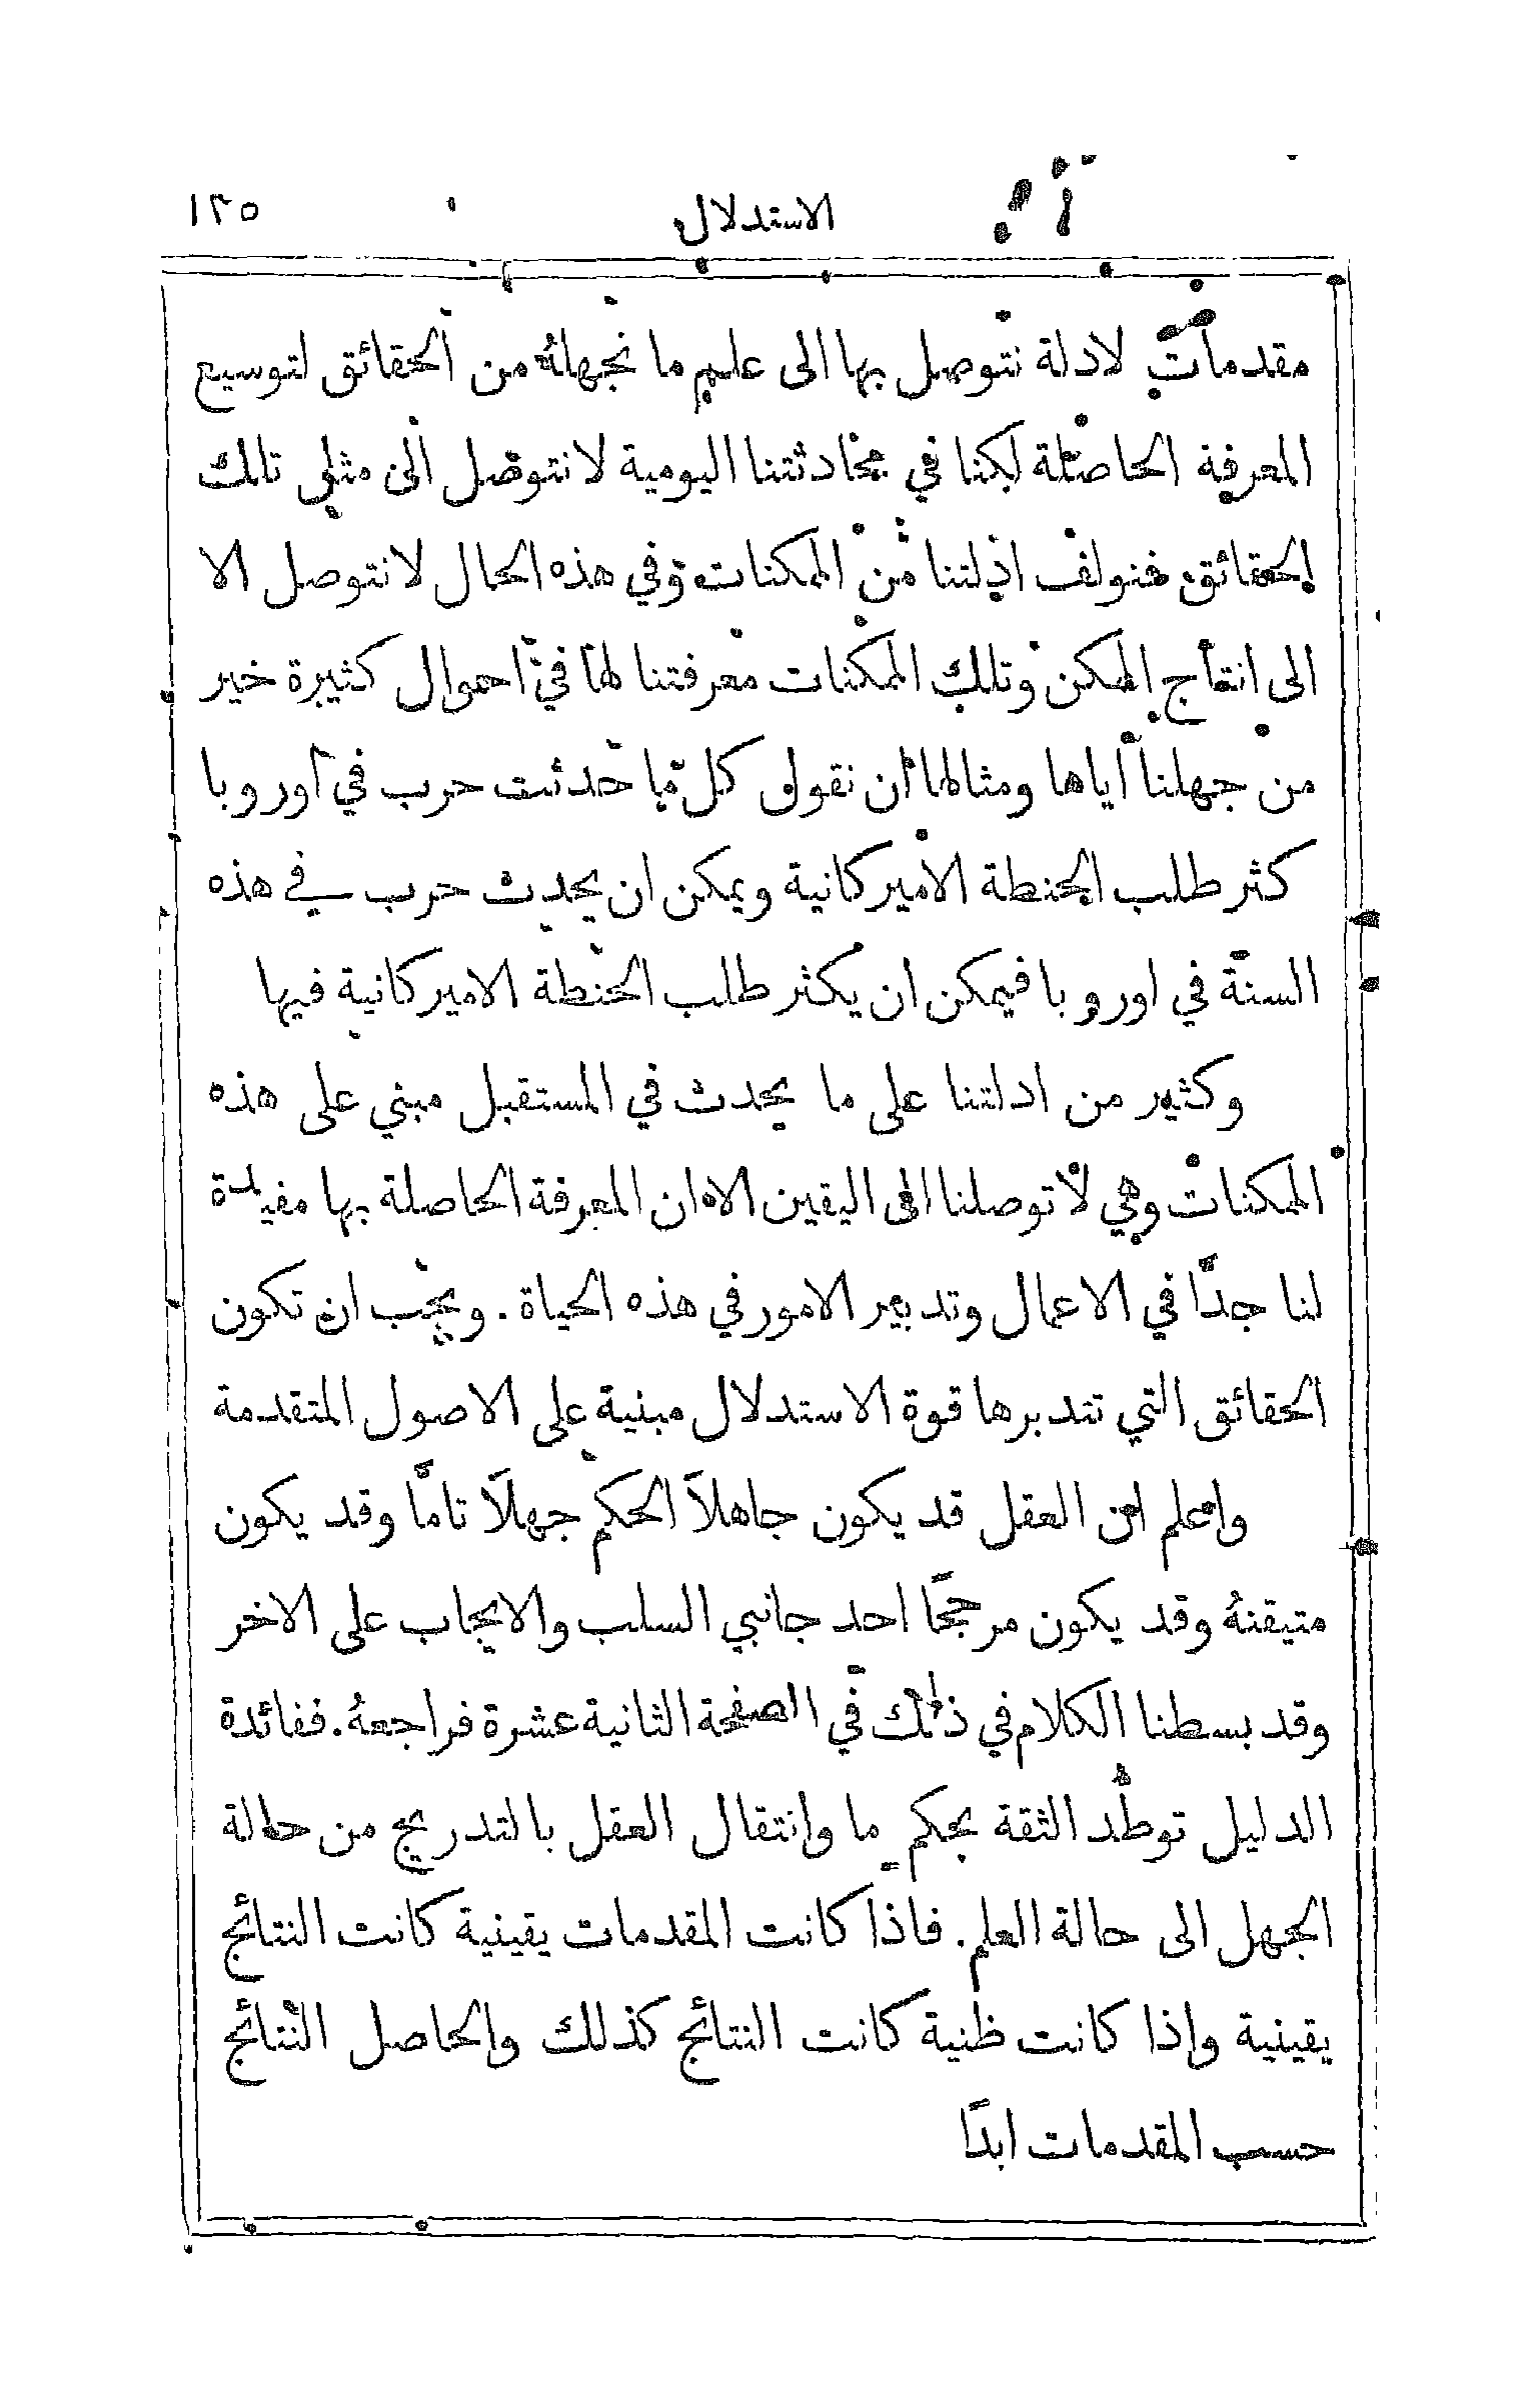 الاستدلال ١٣٥
مقدمات لادلة نتوصل بها الى علم ما نجهلهُ من الحقائق لتوسيع
المعرفة الحاصلة لكنا في محادثتنا اليومية لا نتوصل الى مثل تلك
الحقائق فنولف ادلتنا من الممكنات وفي هذه الحال لا نتوصل الا
الى انتاج الممكن وتلك الممكنات معرفتنا لها في احوال كثيرة خير
من جهلنا اياها ومثالها ان نقول كل ما حدثت حرب في اوروبا
كثر طلب الحنطة الاميركانية ويمكن ان يحدث حرب في هذه
السنة في اوروبا فيمكن ان يكثر طلب الحنطة الاميركانية فيها
وكثير من ادلتنا على ما يحدث في المستقبل مبني على هذه
الممكنات وهي لا توصلنا الى اليقين الا ان المعرفة الحاصلة بها مفيدة
لنا جدًّا في الاعمال وتدبير الامور في هذه الحياة. ويجب ان تكون
الحقائق التي تتدبرها قوة الاستدلال مبنية على الاصول المتقدمة
واعلم ان العقل قد يكون جاهلاً الحكم جهلًا تامًّا وقد يكون
متيقنهُ وقد يكون مرجحًا احد جانبي السلب والايجاب على الاخر
وقد بسطنا الكلام في ذلك في الصفحة الثانية عشرة فراجعهُ. ففائدة
الدليل توطُّد الثقة بحكمٍ ما وانتقال العقل بالتدريج من حالة
الجهل الى حالة العلم. فاذا كانت المقدمات يقينية كانت النتائج
يقينية واذا كانت ظنية كانت النتائج كذلك والحاصل النتائج
حسب المقدمات ابدًا